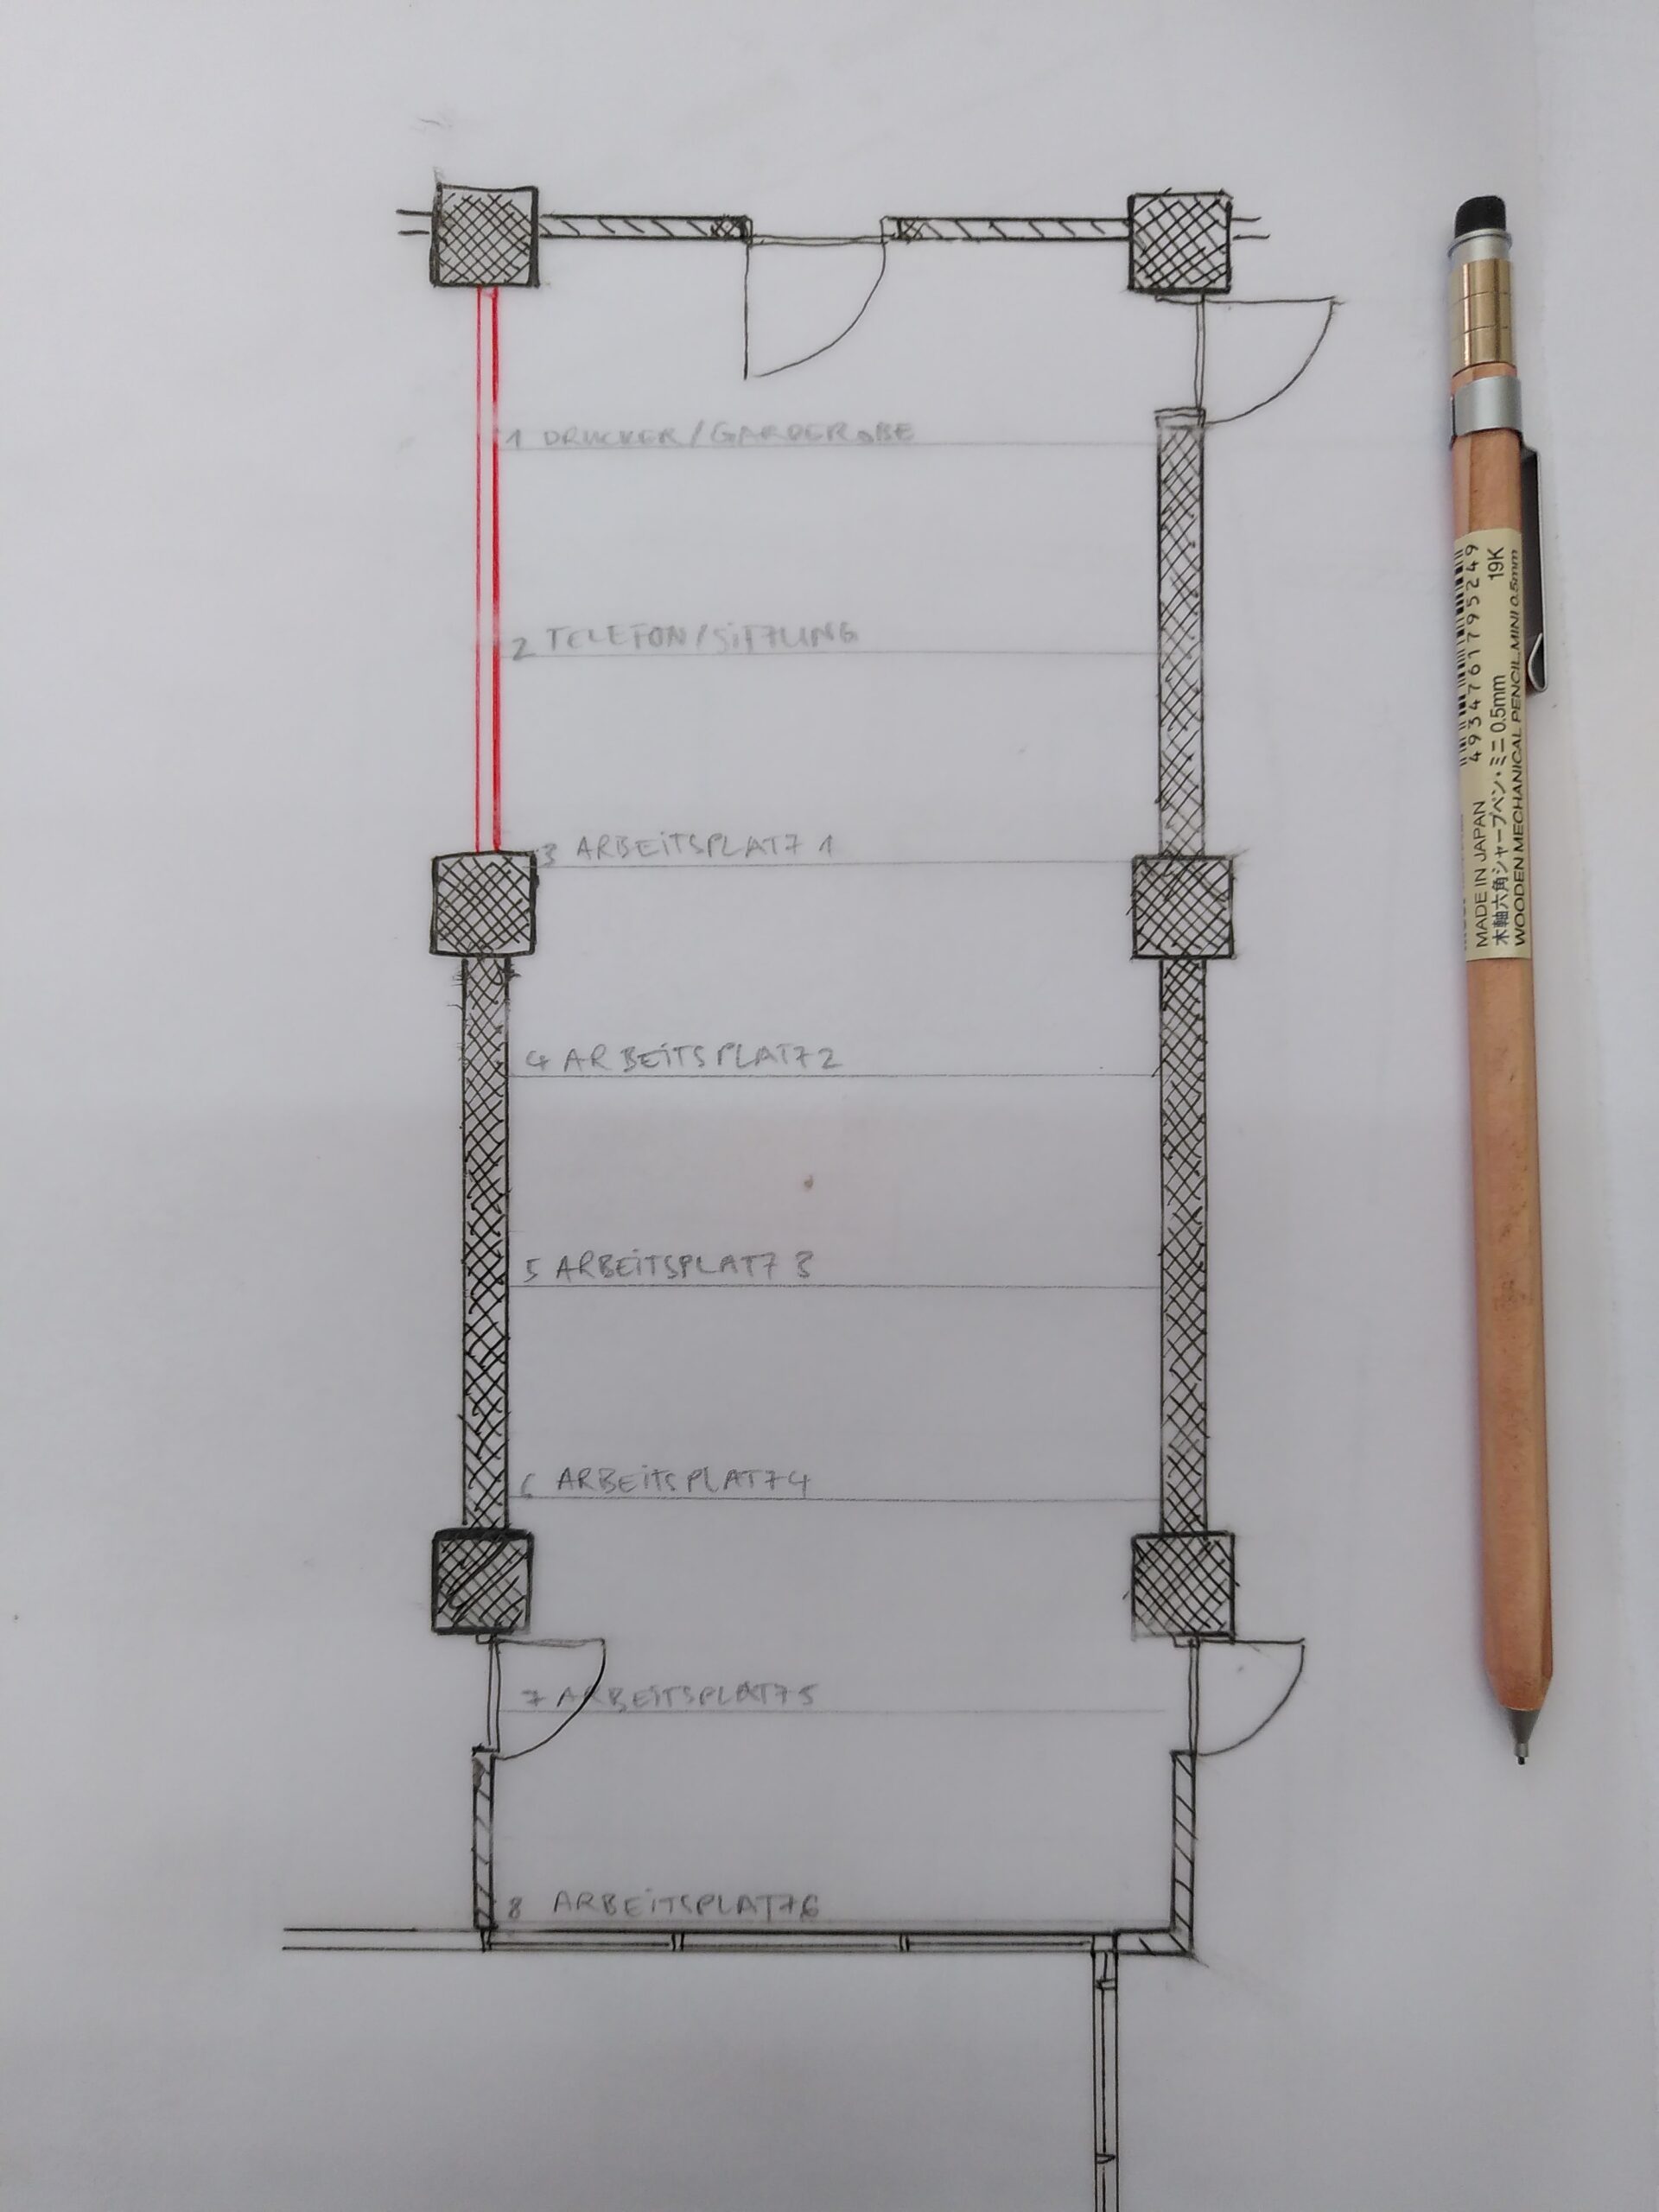 1 DRUCKER/GARDEROBE
2 TELEFON/SITZUNG
3 ARBEITSPLATZ 1
4 ARBEITSPLATZ 2
5 ARBEITSPLATZ 3
6 ARBEITSPLATZ 4
7 ARBEITSPLATZ 5
8 ARBEITSPLATZ 6
4934761795249
19K
MADE IN JAPAN
木軸六角シャープペン・ミニ 0.5mm
WOODEN MECHANICAL PENCIL.MINI 0.5mm